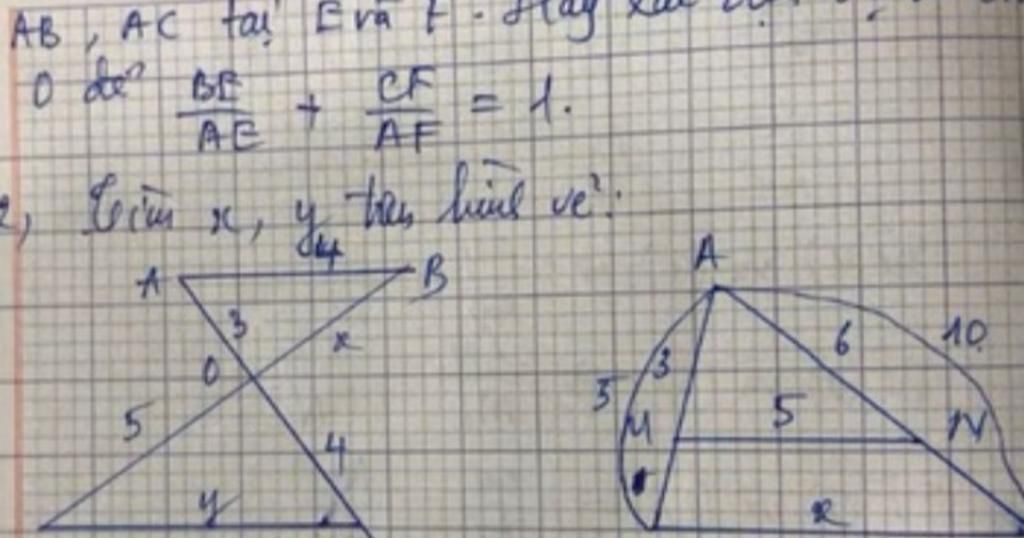 AB, AC tại E và F. Hãy
O để BE/AE + CF/AF = 1.
2, Tìm x, y trên hình vẽ:
A 4 B
3 x
O
5 4
y
A
3 6 10
5
M 5 N
x